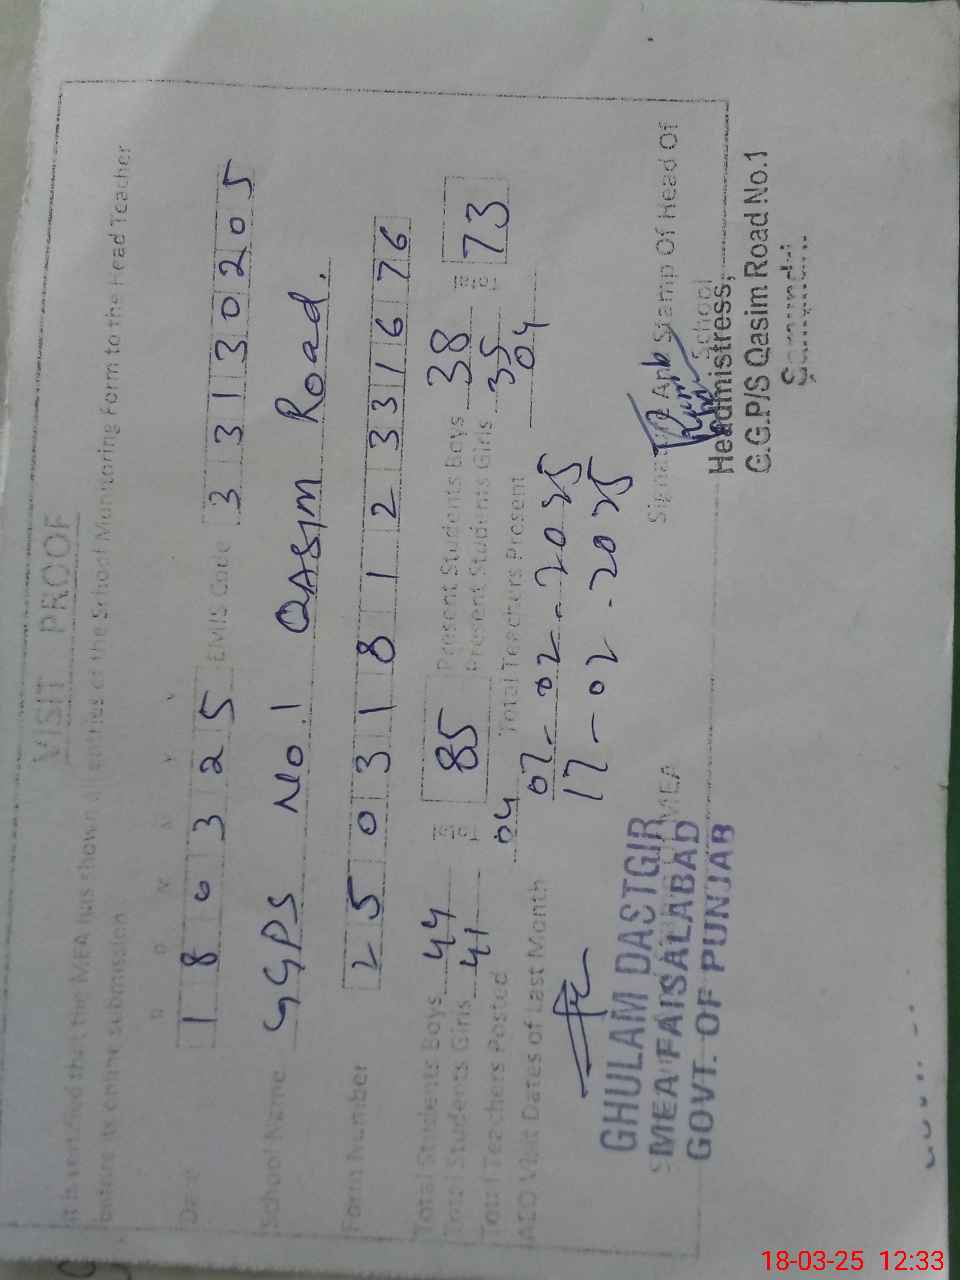 VISIT PROOF
It is verified that the MEA has shown all entries of the School Monitoring Form to the Head Teacher
before its online submission
D D M M Y Y
Date 1 8 0 3 2 5 EMIS Code 3 3 1 3 0 2 0 5
School Name GGPS No.1 QASIM Road.
Form Number 2 5 0 3 1 8 1 2 3 3 1 6 7 6
Total Students Boys 44 = 85 Present Students Boys 38 = 73
Total Students Girls 41 Present Students Girls 35
Total Teachers Posted 04 Total Teachers Present 04
AEO Visit Dates of Last Month 07-02-2025
17-02-2025
GHULAM DASTGIR
MEA FAISALABAD
GOVT. OF PUNJAB
MEA
Signature And Stamp Of Head Of
School
Headmistress,
G.G.P/S Qasim Road No.1
18-03-25 12:33